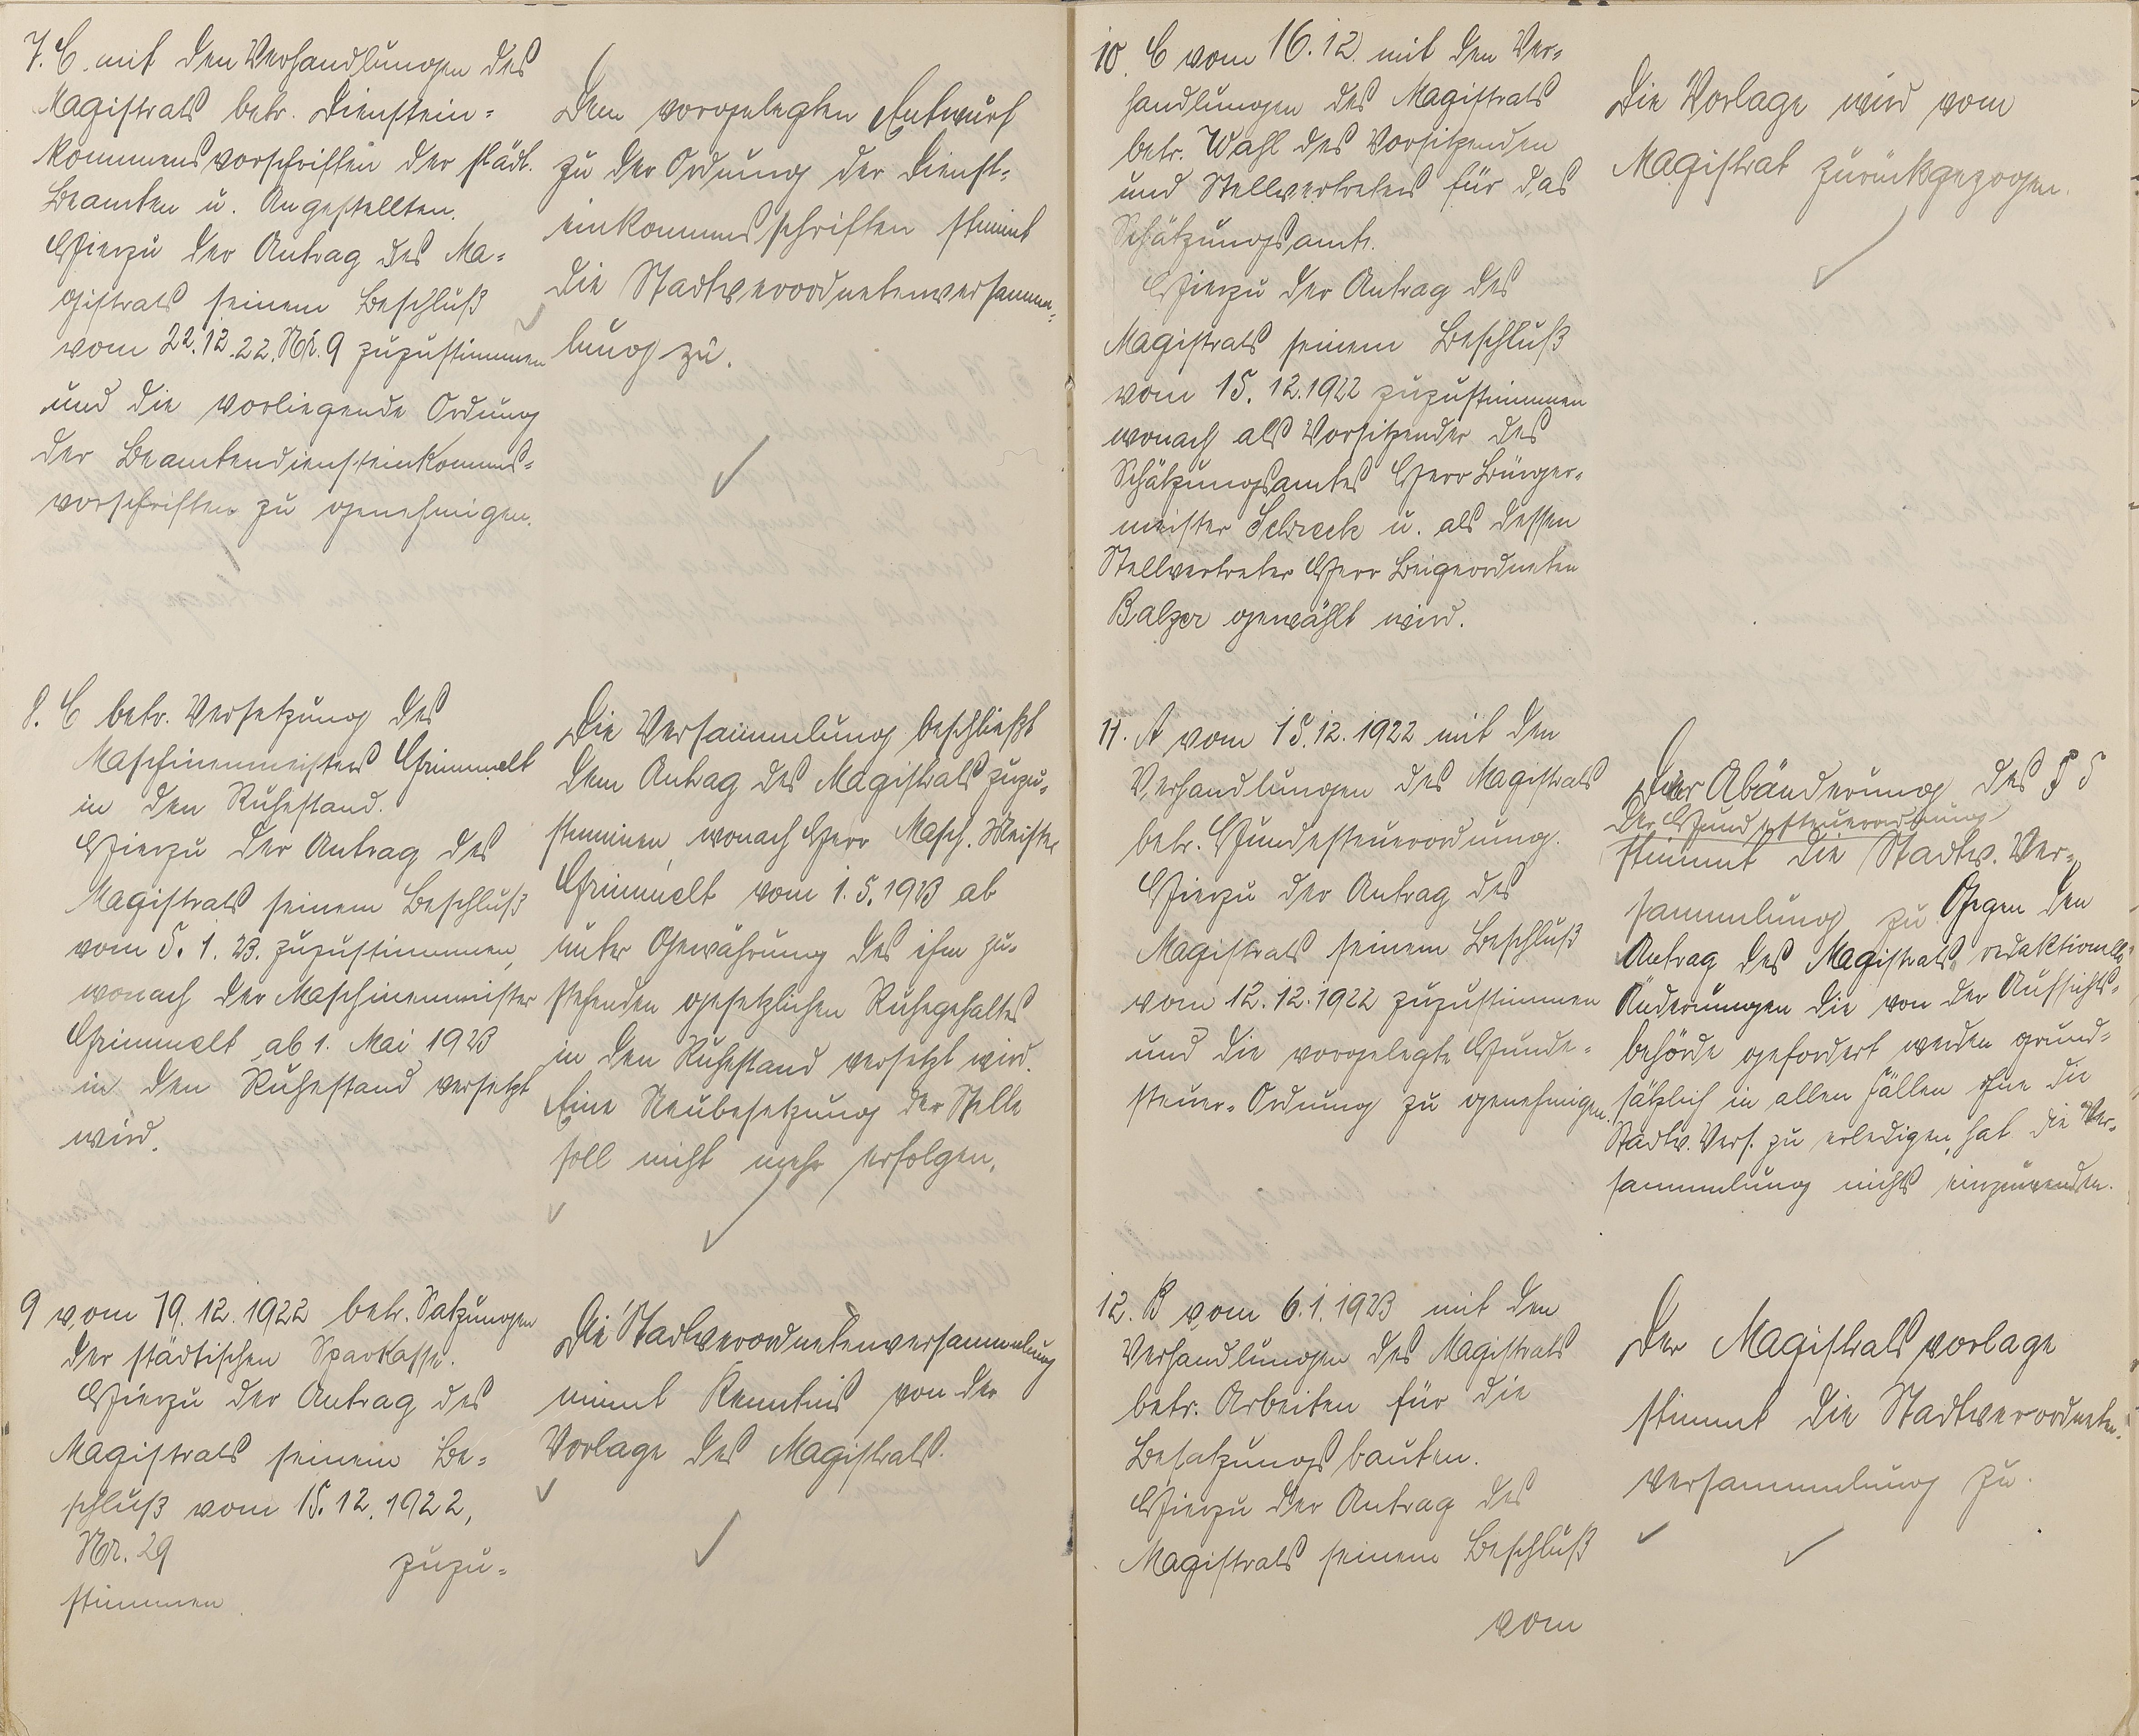 7. C. mit den Verhandlungen des
Magistrats betr. Dienstein=
kommensvorschriften der städt.
Beamten u. Angestellten.
Hierzu der Antrag des Ma=
gistrats seinem Beschluß
vom 22.12.22. Nr. 9 zuzustimmen
und die vorliegende Ordnung
der Beamtendiensteinkomms=
vorschriften zu genehmigen.
Dem vorgelegten Entwurf
zu der Ordnung der Dienst=
einkommensschriften stimmt
die Stadtverordnetenversamm=
lung zu.
8. C betr. Versetzung des
Maschinenmeisters Grimmelt
in den Ruhestand.
Hierzu der Antrag des
Magistrats seinem Beschluß
vom 5. 1. 23. zuzustimmen,
wonach der Maschinenmeister
Grimmelt ab 1. Mai 1923
in den Ruhestand versetzt
wird.
Die Versammlung beschließt
dem Antrag des Magistrats zuzu=
stimmen, wonach Herr Masch. Meister
Grimmelt vom 1. 5. 1923 ab
unter Gewährung des ihm zu=
stehenden gesetzlichen Ruhegehaltes
in den Ruhestand versetzt wird.
Eine Neubesetzung der Stelle
soll nicht mehr erfolgen.
9 vom 19. 12. 1922 betr. Satzungen
der städtischen Sparkasse.
Hierzu der Antrag des
Magistrats seinem Be=
schluß vom 15. 12. 1922,
Nr. 29 zuzu=
stimmen.
Die Stadtverordnetenversammlung
nimmt Kenntnis von der
Vorlage des Magistrats.
10. C vom 16. 12. mit den Ver=
handlungen des Magistrats
betr. Wahl des Vorsitzenden
und Stellvertreters für das
Schätzungsamt.
Hierzu der Antrag des
Magistrats seinem Beschluß
vom 15. 12. 1922 zuzustimmen
wonach als Vorsitzender des
Schätzungsamtes Herr Bürger=
meister Schreck u. als dessen
Stellvertreter Herr Beigeordneten
Balzer gewählt wird.
Die Vorlage wird vom
Magistrat zurückgezogen.
11. A vom 15. 12. 1922 mit den
Verhandlungen des Magistrats
betr. Hundesteuerordnung.
Hierzu der Antrag des
Magistrats seinem Beschluß
vom 12. 12. 1922 zuzustimmen
und die vorgelegte Hunde=
steuer=Ordnung zu genehmigen.
Der Abänderung des § 5
der Hundesteuerordnung
stimmt die Stadtv. Ver=
sammlung zu Gegen den
Antrag des Magistrats, redaktionelle
Änderungen die von der Aufsichts=
behörde gefordert werden grund=
sätzlich in allen Fällen ohne die
Stadtv. Vers. zu erledigen, hat die Ver=
sammlung nichts einzuwenden.
12. B vom 6. 1. 1923 mit den
Verhandlungen des Magistrats
betr. Arbeiten für die
Besatzungsbauten.
Hierzu der Antrag des
Magistrats seinem Beschluß
vom
Der Magistratsvorlage
stimmt die Stadtverordneten=
versammlung zu.